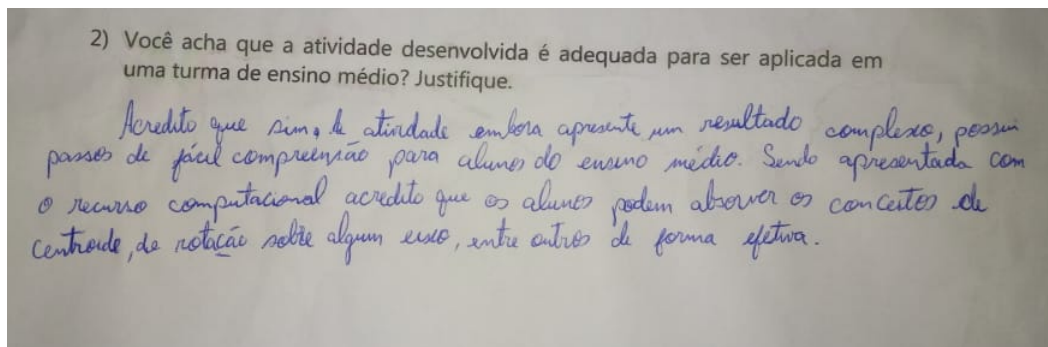 2) Você acha que a atividade desenvolvida é adequada para ser aplicada em
uma turma de ensino médio? Justifique.
Acredito que sim, A atividade embora apresente um resultado complexo, possui
passos de fácil compreensão para alunos do ensino médio. Sendo apresentada com
o recurso computacional acredito que os alunos podem absorver os conceitos de
centroide, de rotação sobre algum eixo, entre outros de forma efetiva.